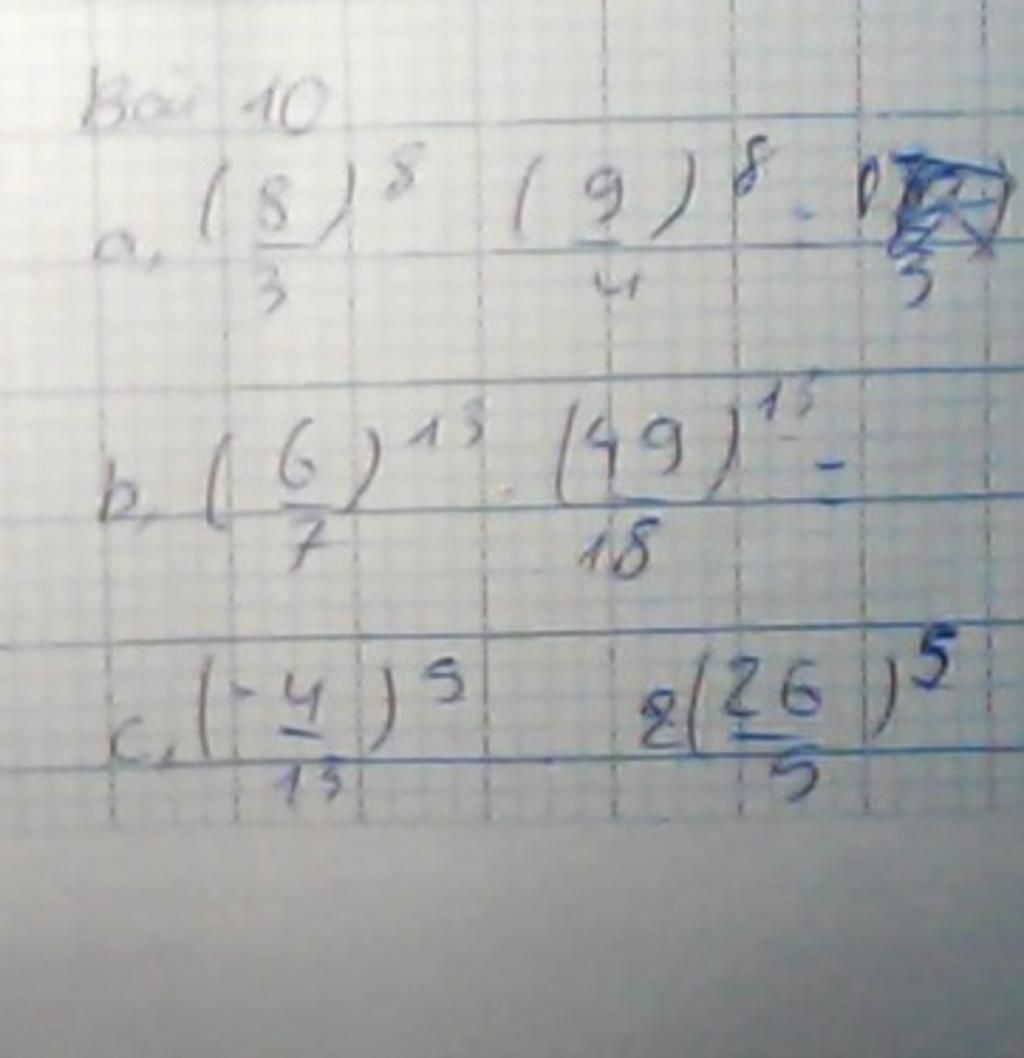 Bài 10
a, (8/3)^8 (9/4)^8 =
b, (6/7)^13 . (49/18)^13 =
c, (-4/13)^5 . 2(26/5)^5